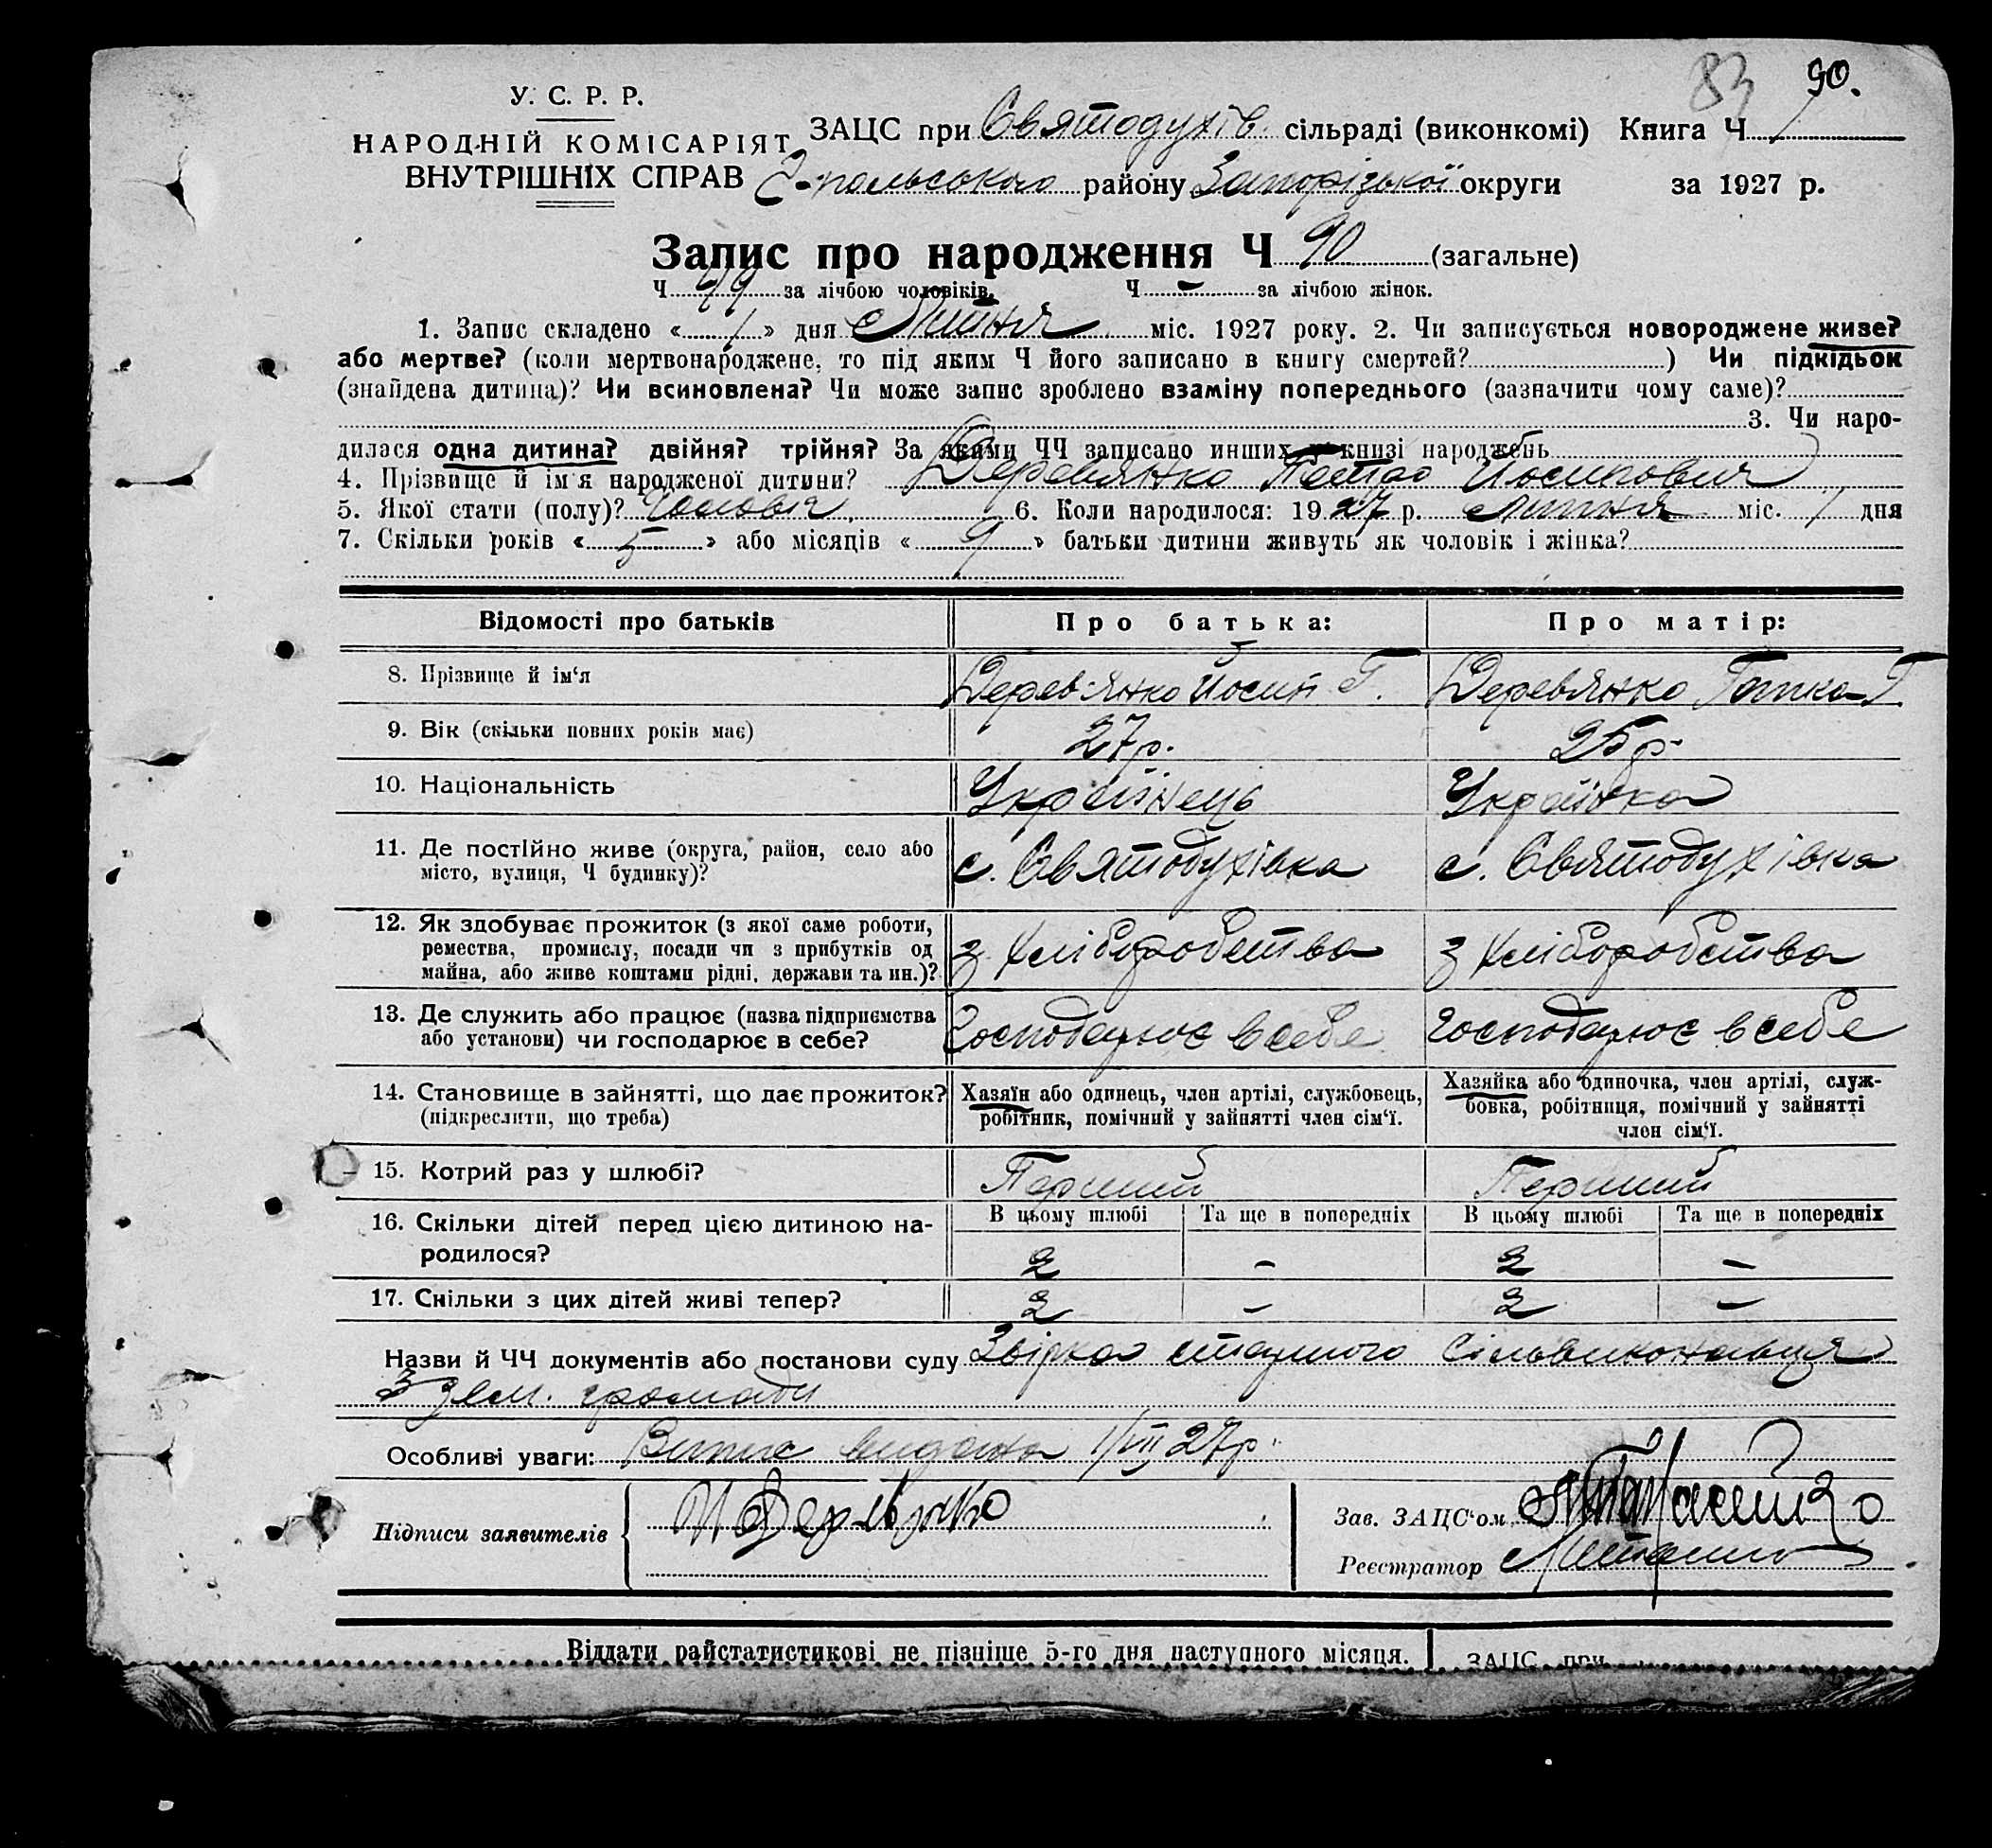 83 90.
У. С. Р. Р.
НАРОДНІЙ КОМІСАРІЯТ
ВНУТРІШНІХ СПРАВ
ЗАЦС при Святодухів. сільраді (виконкомі) Книга Ч 1
Г-польського району Запорізької округи за 1927 р.
Запис про народження Ч 90 (загальне)
Ч 49 за лічбою чоловіків. Ч - за лічбою жінок.
1. Запис складено « 1 » дня Липня міс. 1927 року. 2. Чи записується новороджене живе?
або мертве? (коли мертвонароджене, то під яким Ч його записано в книгу смертей? ) Чи підкідьок
(знайдена дитина)? Чи всиновлена? Чи може запис зроблено взаміну попереднього (зазначити чому саме)?
3. Чи наро-
дилася одна дитина? двійня? трійня? За якими ЧЧ записано инших у книзі народжень
4. Прізвище й ім'я народженої дитини? Деревянко Петро Йосипович
5. Якої стати (полу)? Чоловіч. 6. Коли народилося: 1927 р. Липня міс. 1 дня
7. Скільки років « 5 » або місяців « 9 » батьки дитини живуть як чоловік і жінка?
Відомості про батьків Про батька: Про матір:
8. Прізвище й ім'я Дерев'янко Йосип Г. Деревянко Г.
9. Вік (скільки повних років має) 27р. 25р.
10. Національність Українець Українка
11. Де постійно живе (округа, район, село або
місто, вулиця, Ч будинку)? с. Святодухівка с. Святодухівка
12. Як здобуває прожиток (з якої саме роботи,
ремества, промислу, посади чи з прибутків од
майна, або живе коштами рідні, держави та ин.)? з хліборобства з хліборобства
13. Де служить або працює (назва підприємства
або установи) чи господарює в себе? Господарює в себе господарює в себе
14. Становище в зайнятті, що дає прожиток?
(підкреслити, що треба)
Хазяїн або одинець, член артілі, службовець,
робітник, помічний у зайнятті член сім'ї.
Хазяйка або одиночка, член артілі, служ-
бовка, робітниця, помічний у зайнятті
член сім'ї.
15. Котрий раз у шлюбі? Перший Перший
16. Скільки дітей перед цією дитиною на-
родилося?
В цьому шлюбі Та ще в попередніх В цьому шлюбі Та ще в попередніх
2 - 2 -
17. Скільки з цих дітей живі тепер? 2 - 2 -
Назви й ЧЧ документів або постанови суду Звірка старшого Сільвиконавця
3 зем. громади
Особливі уваги: Випис видана 1/VII 27р.
Підписи заявителів Й Деревянко
Зав. ЗАЦС'ом
Реєстратор
Віддати райстатистикові не пізніше 5-го дня наступного місяця. ЗАЦС при